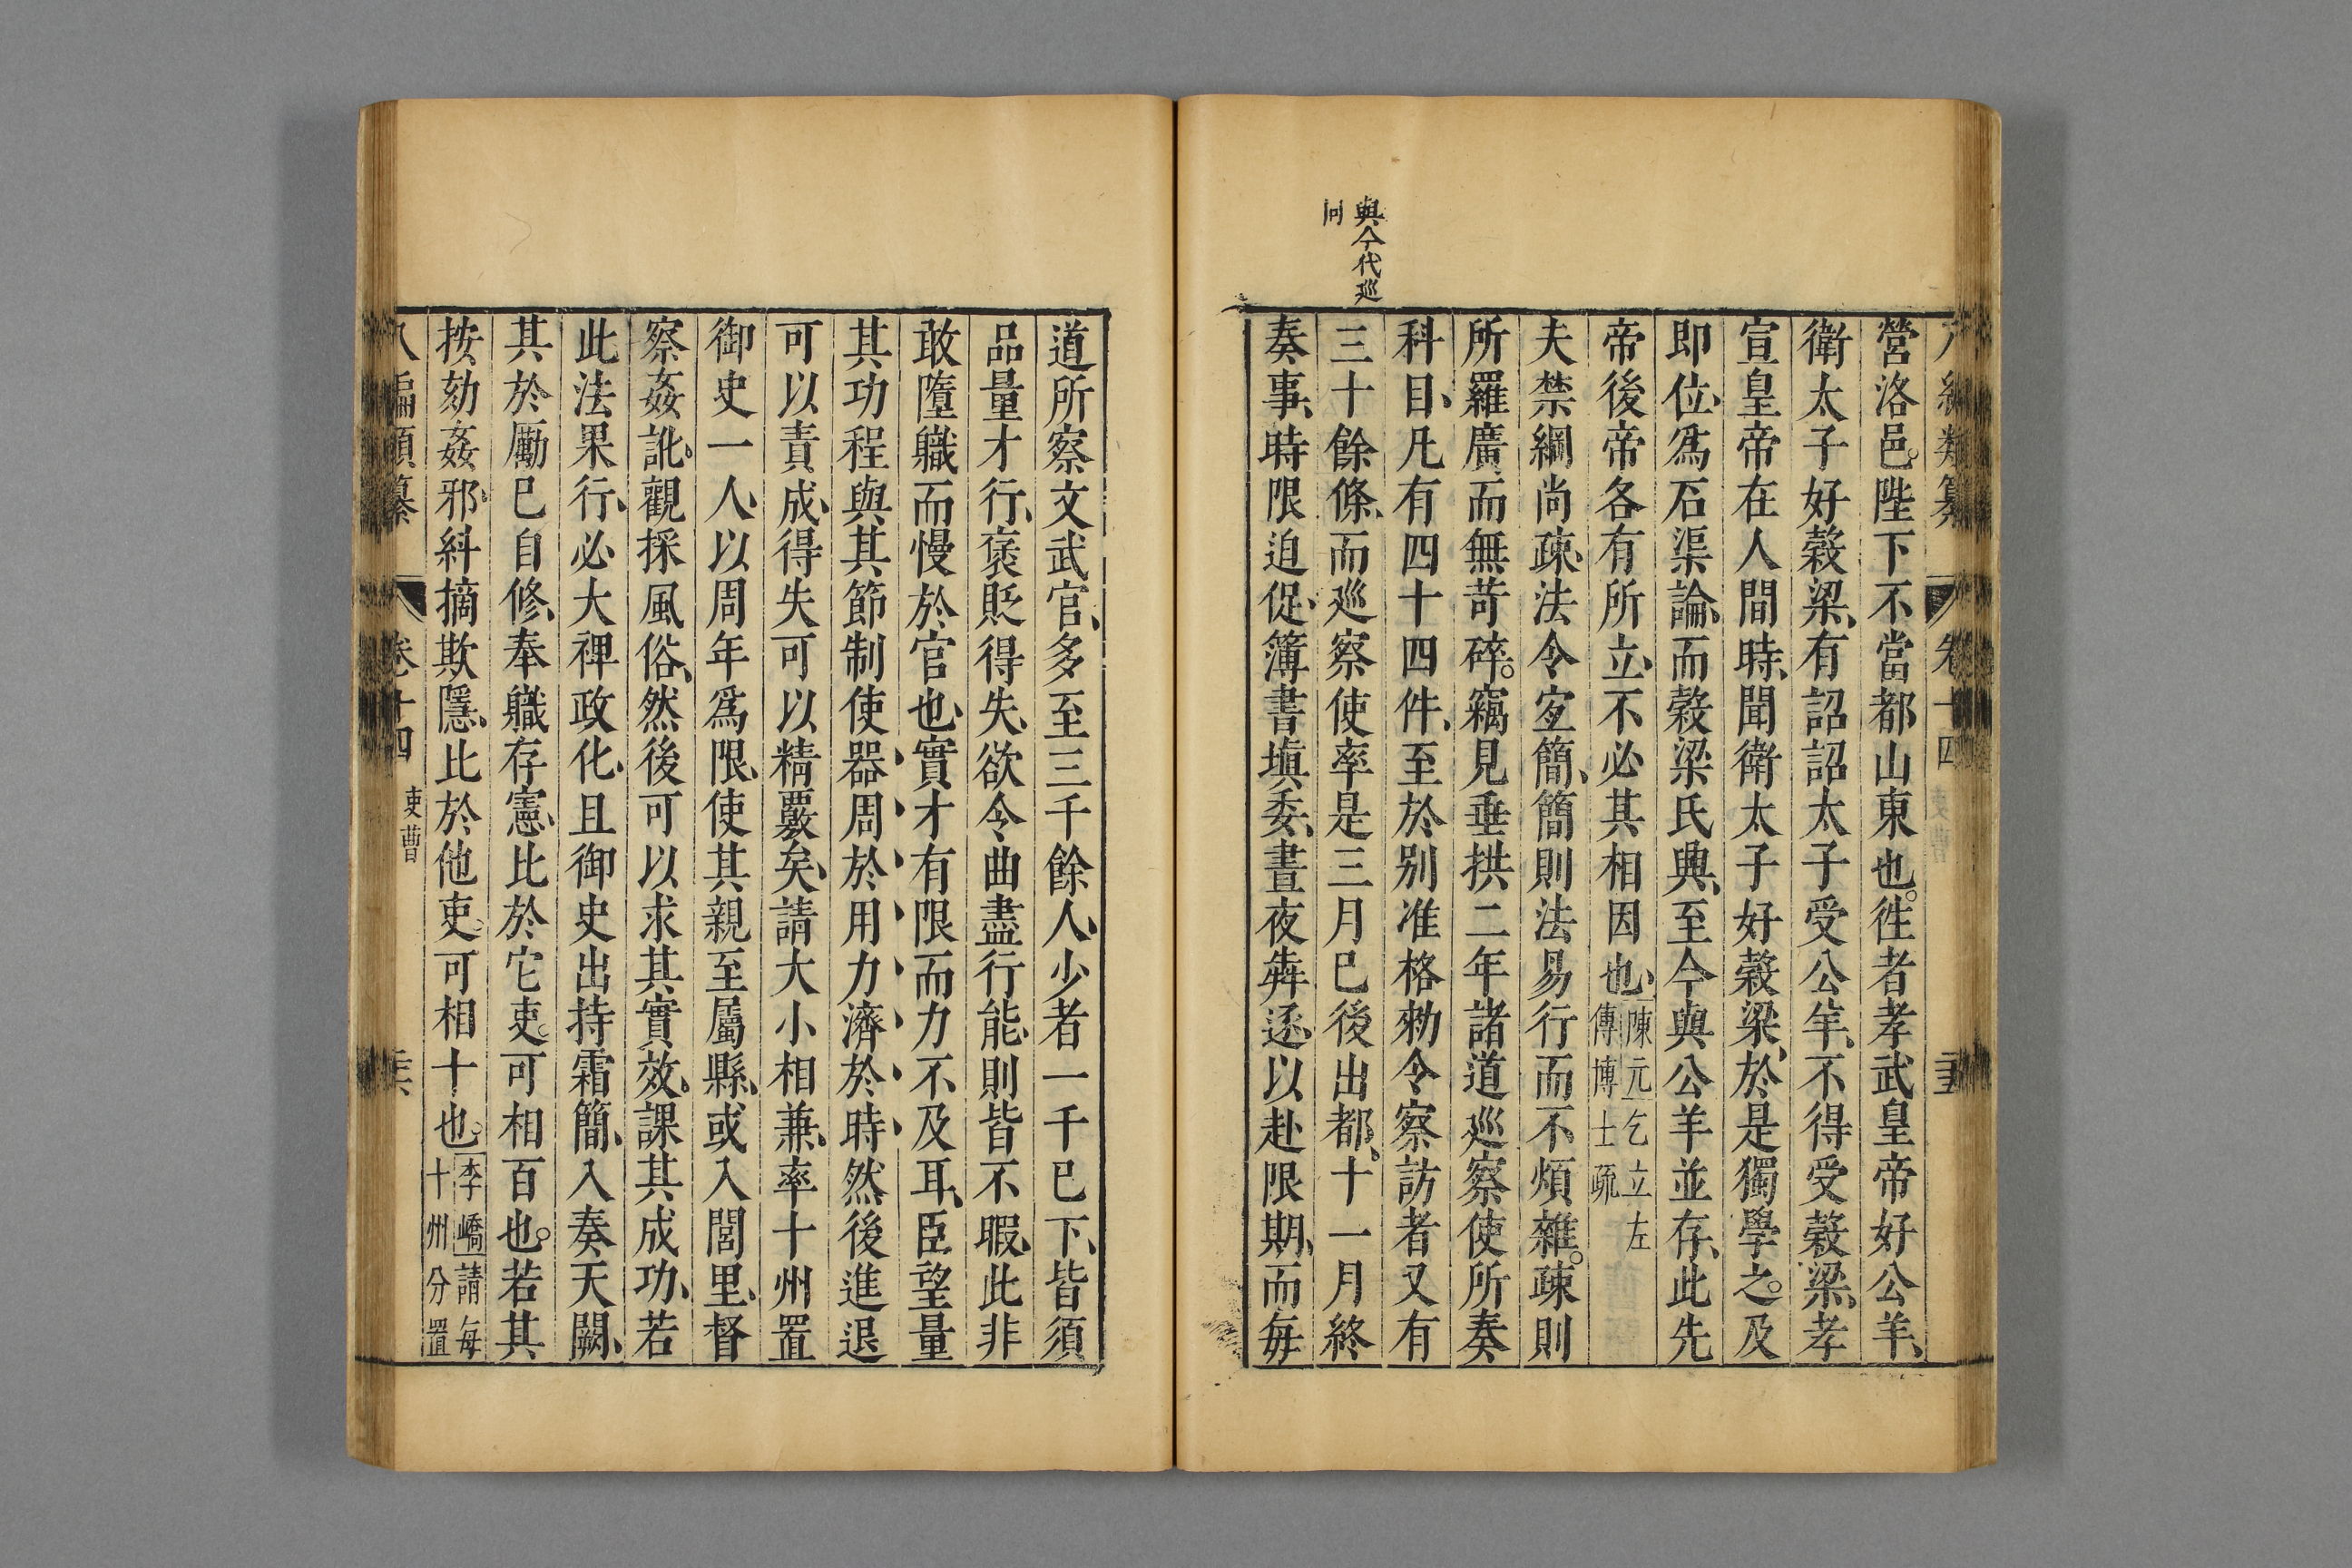 編類纂 卷十四
營洛邑。陛下不當都山東也。徃者孝武皇帝好公羊、
衛太子好榖梁、有詔詔太子受公羊、不得受榖梁、孝
宣皇帝在人間時、聞衛太子好榖梁、於是獨學之。及
即位、爲石渠論、而榖梁氏興、至今與公羊並存、此先
帝後帝各有所立、不必其相因也、陳元乞立左
傳博士疏
夫禁網尚疎、法令宜簡、簡則法易行而不煩雜。疎則
所羅廣、而無苛碎。竊見垂拱二年諸道巡察使所奏
科目、凡有四十四件、至於别准格勑令察訪者又有
與今代巡
同
三十餘條、而巡察使率是三月已後出都、十一月終
奏事、時限迫促、簿書塡委、晝夜犇逐、以赴限期、而每
道所察文武官、多至三千餘人、少者一千已下、皆須
品量才行、褒貶得失、欲令曲盡行能、則皆不暇、此非
敢墮職而慢於官也、實才有限而力不及耳、臣望量
其功程與其節制使器周於用力濟於時、然後進退
可以責成、得失可以精覈矣、請大小相兼、率十州置
御史一人、以周年爲限、使其親至屬縣、或入閭里、督
察姦訛、觀採風俗、然後可以求其實效、課其成功、若
此法果行、必大裨政化、且御史出持霜簡、入奏天闕、
其於勵已自修、奉職存憲、比於它吏、可相百也。若其
按劾姦邪、糾摘欺隱、比於他吏、可相十也。李嶠請每
十州分置
八編類纂 卷十四 吏曹